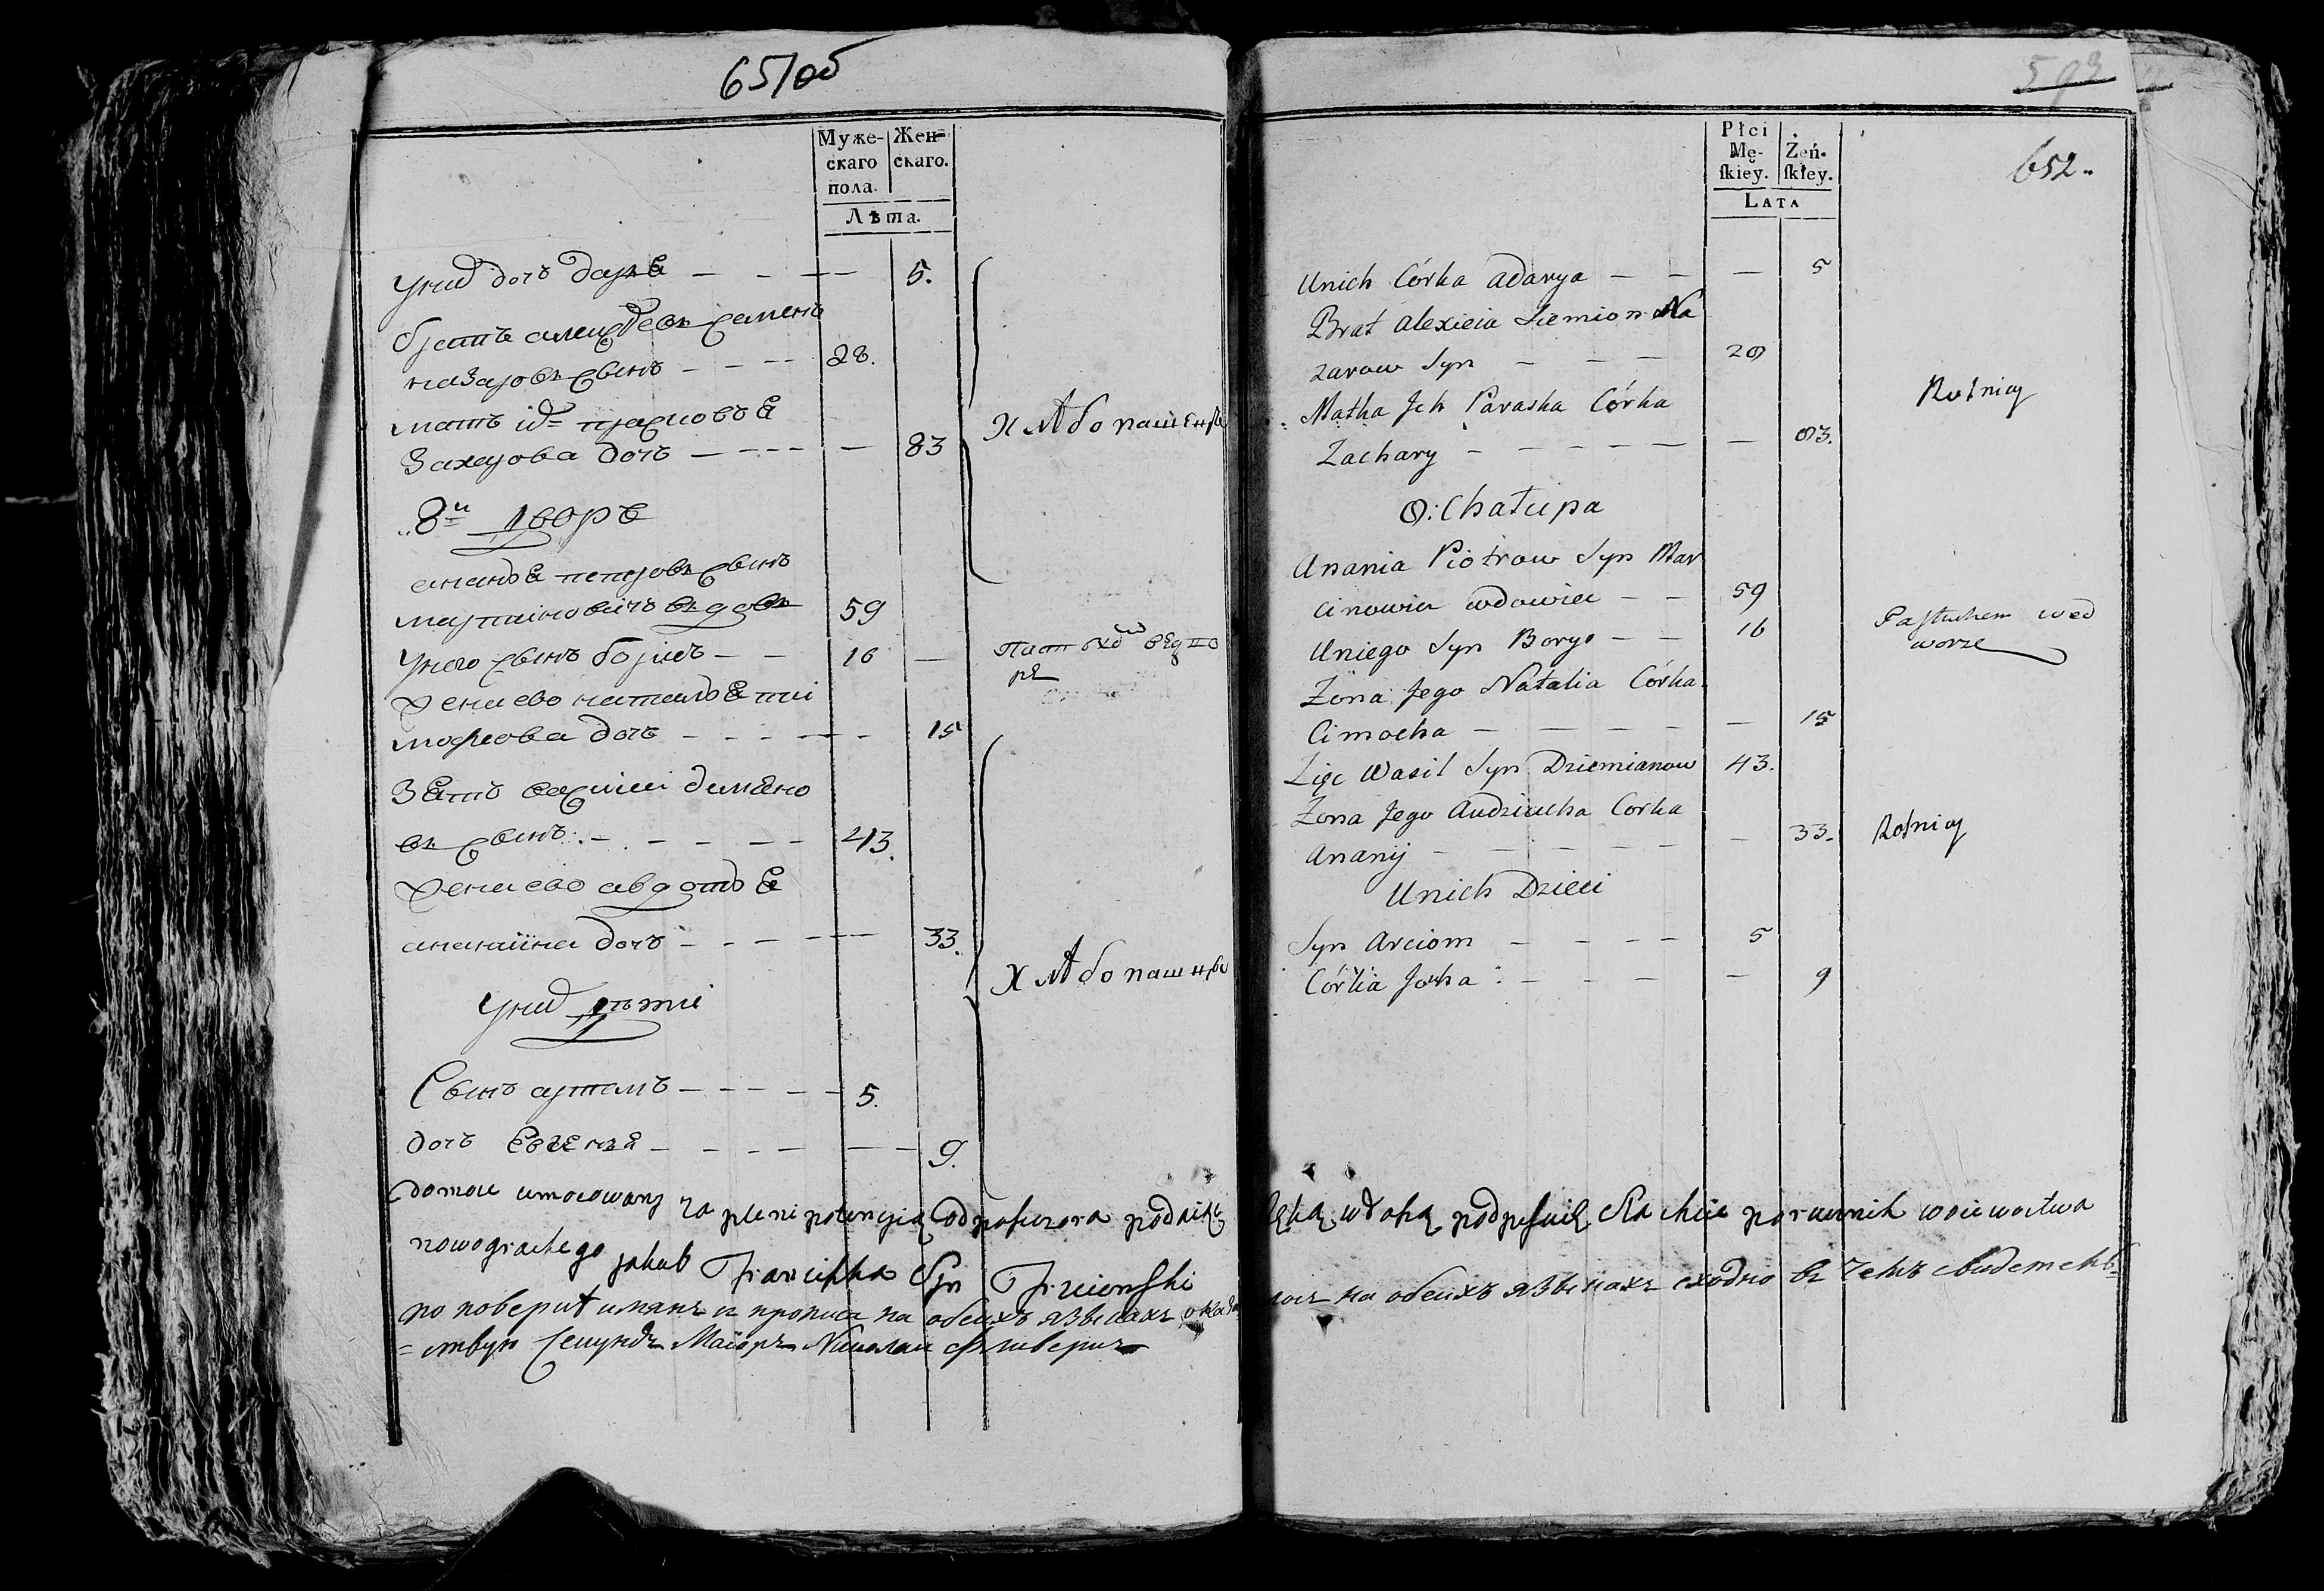 651об
Муже-
скаго
пола.
Жен-
скаго.
Лѣта.
у них дочь дарья — — — 5.
братъ алексѣевъ семенъ
назаровъ сынъ — — — 28.
мать их прасковья
Захарова дочь — — — — 83
Хлѣбопашен
8й дворъ
ананья петровъ сынъ
мартиновичъ вдовъ 59
у него сынъ борисъ — — 16 —
пастухом ве дво
ре
жена ево наталья ти
мофеова дочь — — — — 15
Зять василей демяно
въ сынъ — — — — — 43.
жена ево авдотья
ананиина дочь — — — — 33.
Хлѣбопашен
у них дѣти
Сынъ артемъ — — — — — 5.
дочь Евгенья — — — — — — 9.
593
652.
Płci
Mę-
ſkiey.
Żeń-
ſkiey.
Lata
Unich Córka adarya — — — 5
Brat Alexieia Siemion Na
zarow Syn — — — 28
Matka Ich Paraska Córka
Zachary — — — — — — 83.
Rolnicy
8: Chałupa
Anania Piotrow Syn Mar
cinowicz wdowiec — — 59
Uniego Syn Borys — — 16
Pastuchem wed
worze
Żona Jego Natalia Córka
Cimocha — — — — — 15
Zięc Wasil Syn Dziemianow 43.
Żona Jego Audziucha Corka
Ananij — — — — — — 33.
Rolnicy
Unich Dzieci
Syn Arciom — — — — 5
Córka Jowha : — — — — 9
umocowany za plenipotencyią od podaiąc ręką włosną podpisuię porucznik woiewoctwa
nowogrodzkego Jakub Franciszka Syn
по поверит и на обеихъ языкахъ оказалось на обеихъ языкахъ сходно въ чемъ свидетель=
=ствую Секундъ Маіоръ Николай